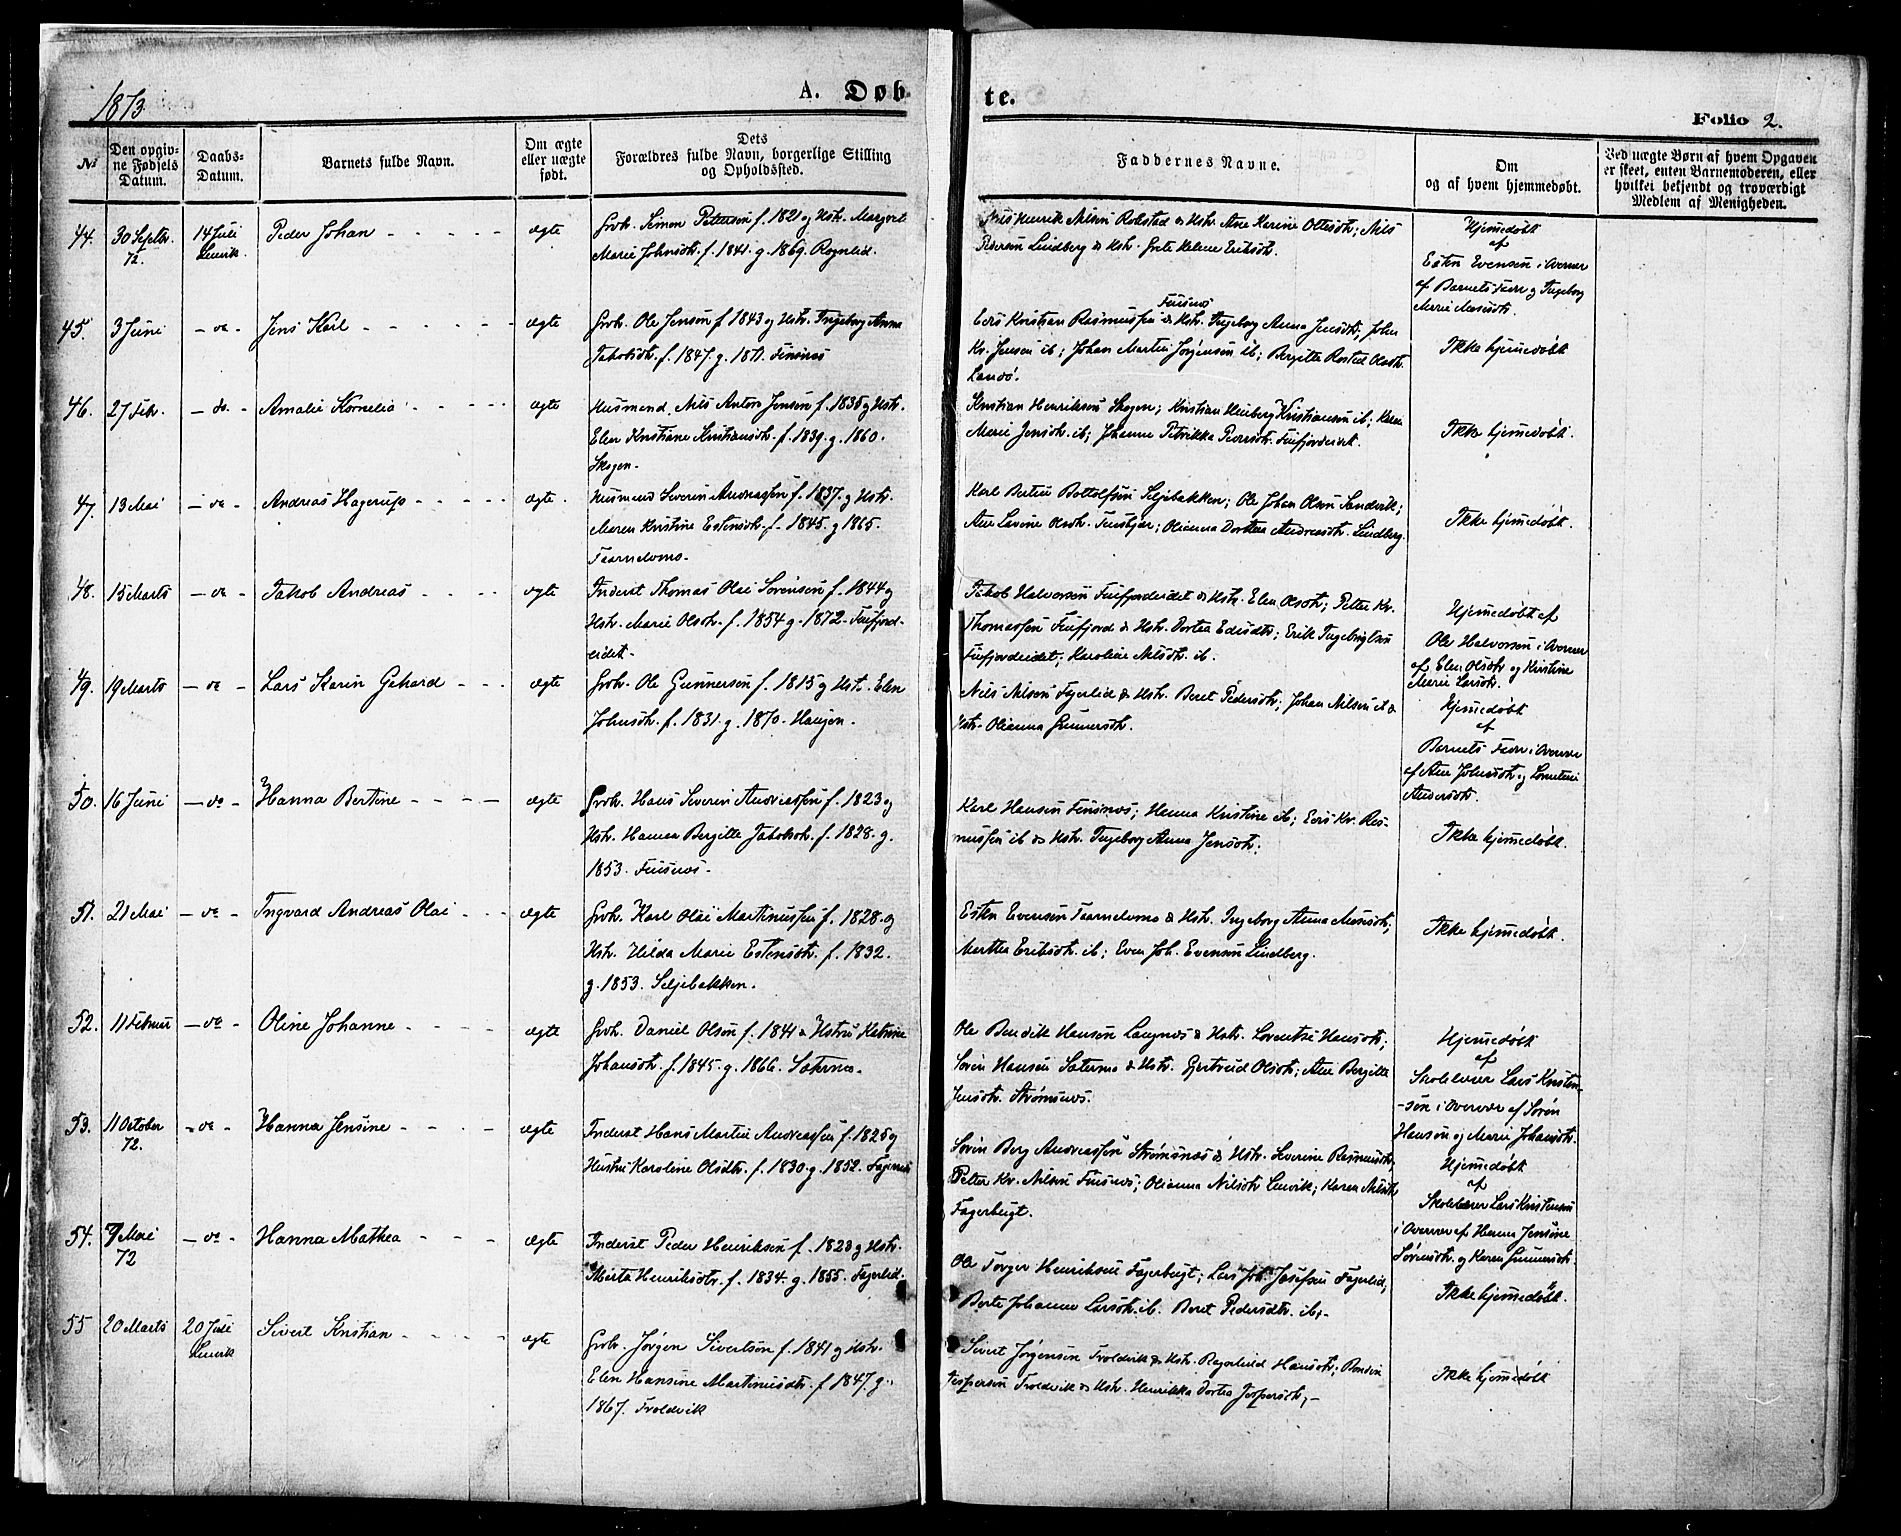 1873
A. Døbte.
Folio 2.
No
Den opgivne Fødsels Datum.
Daabs-Datum.
Barnets fulde Navn.
Om ægte eller uægte født.
Dets Forældres fulde Navn, borgerlige Stilling og Opholdssted.
Faddernes Navne.
Om og af hvem hjemmedøbt.
Ved uægte Børn af hvem Opgaven er skeet, enten Barnemoderen, eller hvilket bekjendt og troværdigt Medlem af Menigheden.
44. 30 Septbr. 72. 14 Juli Lenvik. Peder Johan ægte
Grbr. Simon Petersen f. 1821 og Hstr. Margret
Marie Johnsdtr. f. 1841. g. 1869. Rognlid.
Henrik Nilsen Robstad & Hstr. Ane Karine Ottesdtr; Nils
Pedersen Lindberg & Hstr. Grete Helene Eriksdtr.
Hjemmedøbt
af
Esten Evensen i Overvær
af Barnets Fader og Ingeborg
Marie Monsdtr.
45. 3 Juni - do - Jens Karl ægte
Grbr. Ole Jensen f. 1843 og Hstr. Ingeborg Anna
Jakobsdtr. f. 1847. g. 1871. Finsnes
Finsnes
Edis Kristian Rasmussen & Hstr. Ingeborg Anna Jensdtr; John
Kr. Jensen ib; Johan Martin Jørgensen ib; Bergitte Olsdtr.
Landø.
Ikke hjemmedøbt
46. 27 Febr. - do - Amalie Kornelia ægte
Husmand, Nils Anton Jensen f. 1835 og Hstr.
Elen Kristiane Kristiansdtr. f. 1839. g. 1860.
Skogen.
Kristian Henriksen Skogen; Kristian Kristiansen ib; Karen
Marie Jensdtr. ib; Johanna Petrikka Pedersdtr. Finfjordeidet.
Ikke hjemmedøbt.
47. 13 Mai - do - Andreas Hagerup ægte.
Husmand Severin Andreassen f. 1837. g Hstr.
Maren Kristine Estensdtr. f. 1845. g 1865.
Taarnelvmo.
Karl Bertin Bottolfsen Seljebakken; Ole Johan Olsen Sandvik;
Ane Lovine Olsdtr. Finshjør; Olianna Dorthea Andreasdtr. Lindberg.
Ikke hjemmedøbt.
48. 15 Marts - do - Jakob Andreas ægte
Inderst Thomas Olai Sørensen f. 1844 og
Hstr. Marie Olsdtr. f. 1854 g. 1872. Finfjord-
eidet.
Jakob Halvorsen Finfjordeidet & Hstr. Elen Olsdtr; Peter Kr.
Thomassen Finfjord & Hstr. Dortea Edisdtr; Erik
Finfjordeidet; Karoline Nilsdtr. ib.
Hjemmedøbt af
Ole Halvorsen i Overvær
af Elen Olsdtr og Kristine
Marie Larsdtr.
49. 19 Marts - do - Lars Karin Gehard ægte
Grbr. Ole Gunnersen f. 1815 og Hstr. Elen
Johnsdtr. f. 1831. g. 1870. Haugen.
Nils Nilsen Fagerlid & Hstr. Beret Pedersdtr; Johan Nilsen ib &
Hstr. Olianna Gunnersdtr.
Hjemmedøbt
af
Barnets Fader i Overvær
af Ane Johnsdtr og
Andersdtr.
50. 16 Juni - do - Hanna Bertine ægte
Grbr. Hans Severin Andreassen f. 1823 og
Hstr. Hanna Bergitte Jakobsdtr. f. 1828. g.
1853. Finsnes.
Karl Hansen Finsnes; Hanna Kristine ib; Edis Kr. Ras-
mussen ib & Hstr. Ingeborg Anna Jensdtr.
Ikke hjemmedøbt.
51. 21 Mai - do - Ingvard Andreas Olai ægte
Grbr. Karl Olai Martinussen f. 1828. og
Hstr. Hilda Marie Estensdtr. f. 1832.
g. 1853. Seljebakken.
Esten Evensen Taarnelvmo & Hstr. Ingeborg Anna Monsdtr;
Marthea Eriksdtr. ib; Even Joh. Evensen Lindberg.
Ikke hjemmedøbt.
52. 11 Februar - do - Oline Johanne ægte
Grbr. Daniel Olson f. 1841 & Hstru Katrine
Johansdtr. f. 1845. g. 1866. Sæternes.
Ole Bendik Hansen Langnes & Hstr. Lorentse Hansdtr;
Søren Hansen Sætermo & Hstr. Gjertrud Olsdtr; Ane Bergitte
Jensdtr. Strømsnes.
Hjemmedøbt
af
Skolelærer Lars Kristen-
-sen i Overvær af Søren
Hanson og Marie Johansdtr.
53. 11 October 72. - do - Hanna Jensine ægte
Inderst Hans Martin Andreassen f. 1825 og
Hustru Karoline Olsdtr. f. 1830 g. 1852. Fagernes
Søren Berg Andreassen Strømsnes & Hstr. Severine Rasmusdtr;
Peter Kr. Nilsen Finsnes; Olianna Nilsdtr Lenvik; Karen Nilsdtr
Fagerbugt.
Hjemmedøbt
af
Skolelærer Lars Kristensen
i Overvær af Hanna Jensine
Sørensdtr. og Karen Gunnersdtr.
54. 7 Mai 72 - do - Hanna Mathea ægte
Inderst Peder Henriksen f. 1823 og Hstr.
Marta Henriksdtr. f. 1834. g. 1855. Fagerlid.
Ole Torger Henriksen Fagerbugt; Lars Joh. Josefsen Fagerlid;
Berte Johanna Larsdtr. ib. Beret Pedersdtr. ib.
Ikke hjemmedøbt.
55 20 Marts 20 Juli Lenvik Sivert Kristian ægte
Grbr. Jørgen Sivertson f. 1841 og Hstr.
Elen Hansine Martinusdtr. f 1847. g.
1867. Troldvik
Sivert Jørgensen Troldvik & Hstr. Ragnhild Hansdtr;
Jespersen Troldvik & Hstr. Henrikka Dortea Jespersdtr.
Ikke hjemmedøbt